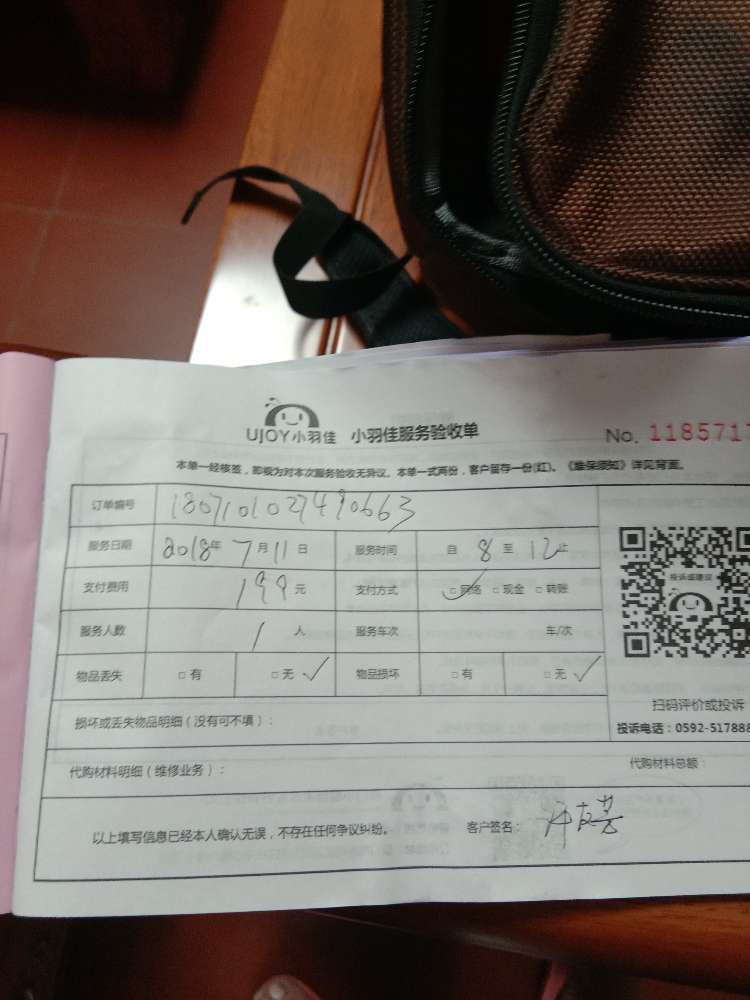 UJOY小羽佳 小羽佳服务验收单
No. 1185717
本单一经核签，即视为对本次服务验收无异议。本单一式两份，客户留存一份(红)。《维保须知》详见背面。
订单编号 1807101027490663
服务日期 2018年7月11日 服务时间 自8至12止
支付费用 199元 支付方式 □网络 □现金 □转账
服务人数 1人 服务车次 车/次
物品丢失 □有 □无 ✓ 物品损坏 □有 □无 ✓
投诉或建议
扫码评价或投诉
损坏或丢失物品明细（没有可不填）：
投诉电话：0592-517888
代购材料明细（维修业务）：
代购材料总额：
以上填写信息已经本人确认无误，不存在任何争议纠纷。 客户签名：